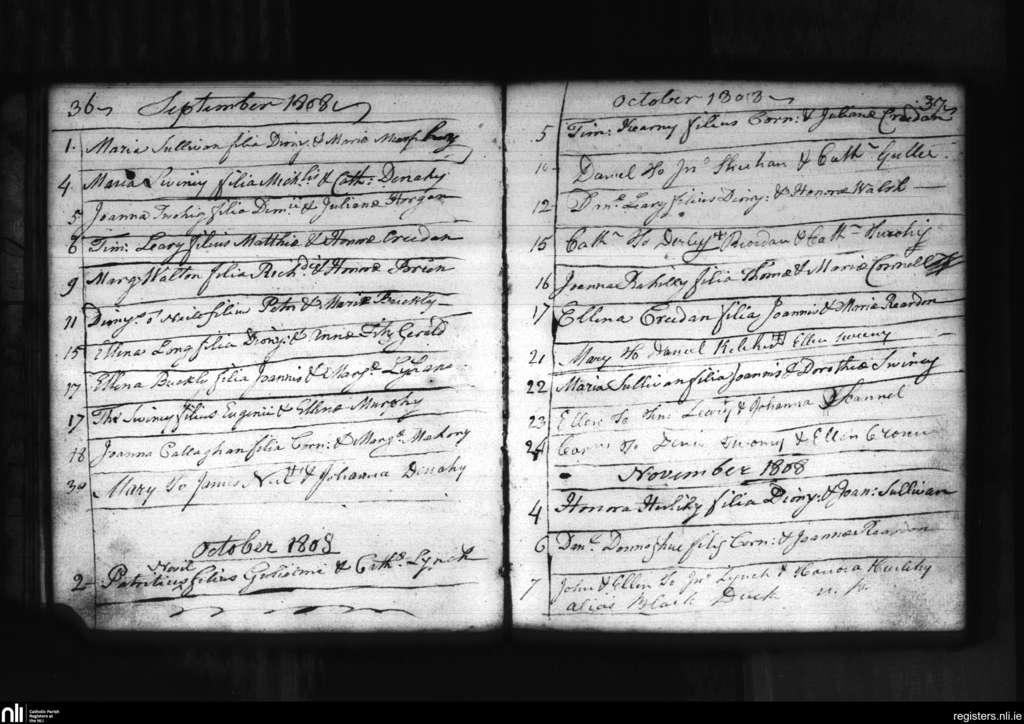 36 September 1808
1. Maria Sullivan filia Diony: & Maria Murphy
4. Maria Swiney filia Mich:is & Cath: Denahy
5 Joanna Twohig filia Dan:ii & Julianæ Horgan
6 Tim: Leary filius Matthiæ & Honoræ Creedan
9 Marg: Walton filia Rich:di & Honoræ Brien
11 Diony:s o Neile filius Petri & Mariæ Buckly
15 Ellena Long filia Diony: & Annæ Fitz Gerald
17 Ellena Buckly filia Joannis & Marg:æ Lyhane
17 Ths Swiney filius Eugenii & Ellenæ Murphy
18 Joanna Callaghan filia Corn: & Marg:æ Mahony
30 Mary to James Neill & Johanna Denahy
October 1808
Novil
2 Patritius filius Gulielmi & Cath: Lynch
October 1808 37
5 Tim: Kearny filius Corn: & Julianæ Creedan
10 Daniel to Jno Sheehan & Cath:
12 Dnl: Leary filius Diony: & Honoræ Walsh
15 Cath to Derby Riordan & Cath Twohy
16 Joanna Rahilly filia Thomæ & Mariæ Connell
17 Ellena Creedan filia Joannis & Maria Reardon
21 Mary to Daniel Kelehir & Ellen Sweeny
22 Maria Sullivan filia Joannis & Dorotheæ Swiney
23 Ellen to Tim Leary & Johanna Shannel
24 to Denis & Ellen Cronin
November 1808
4 Honora Hurlihy filia Diony: & Joan: Sullivan
6 Dnl: Donnoghue filius Corn: & Joannæ Reardon
7 John & Ellen to Jno Lynch & Honora Hurlihy
alias Black Duck
nli Catholic Parish
Registers at
the NLI
registers.nli.ie